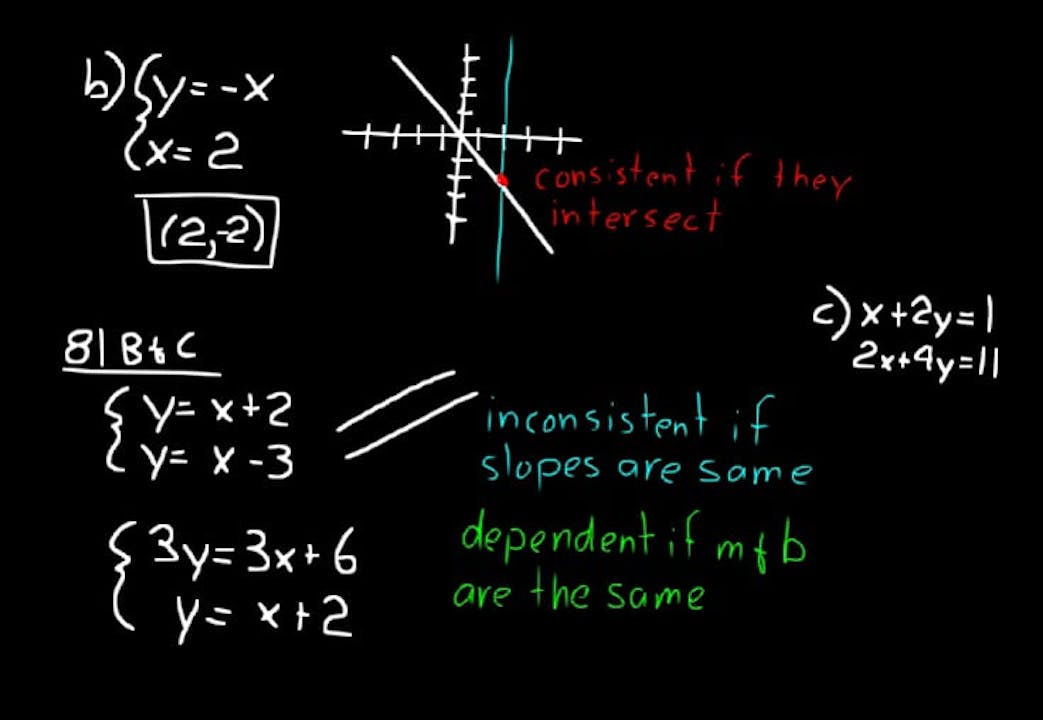 b) { y = -x
x = 2
(2,-2)
consistent if they
intersect
c) x+2y=1
2x+4y=11
81 B & C
{ y = x+2
y = x-3
inconsistent if
slopes are same
{ 3y=3x+6
y = x+2
dependent if m & b
are the same